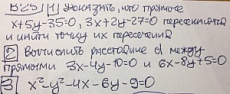 В25 [1] Доказать, что прямые
x+5y-35=0, 3x+2y-27=0 пересекаются
и найти точку их пересечения
[2] Вычислить расстояние d между
прямыми 3x-4y-10=0 и 6x-8y+5=0
[3] x²-y²-4x-6y-9=0